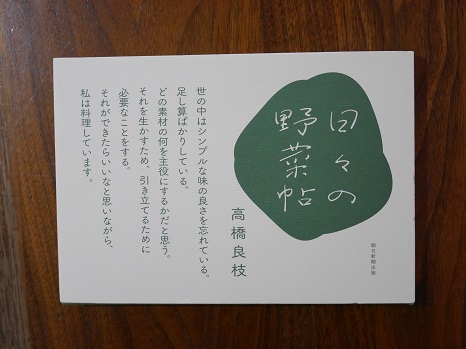 日々の
野菜帖
高橋良枝
朝日新聞出版
世の中はシンプルな味の良さを忘れている。
足し算ばかりしている。
どの素材の何を主役にするかだと思う。
それを生かすため、引き立てるために
必要なことをする。
それができたらいいなと思いながら、
私は料理しています。